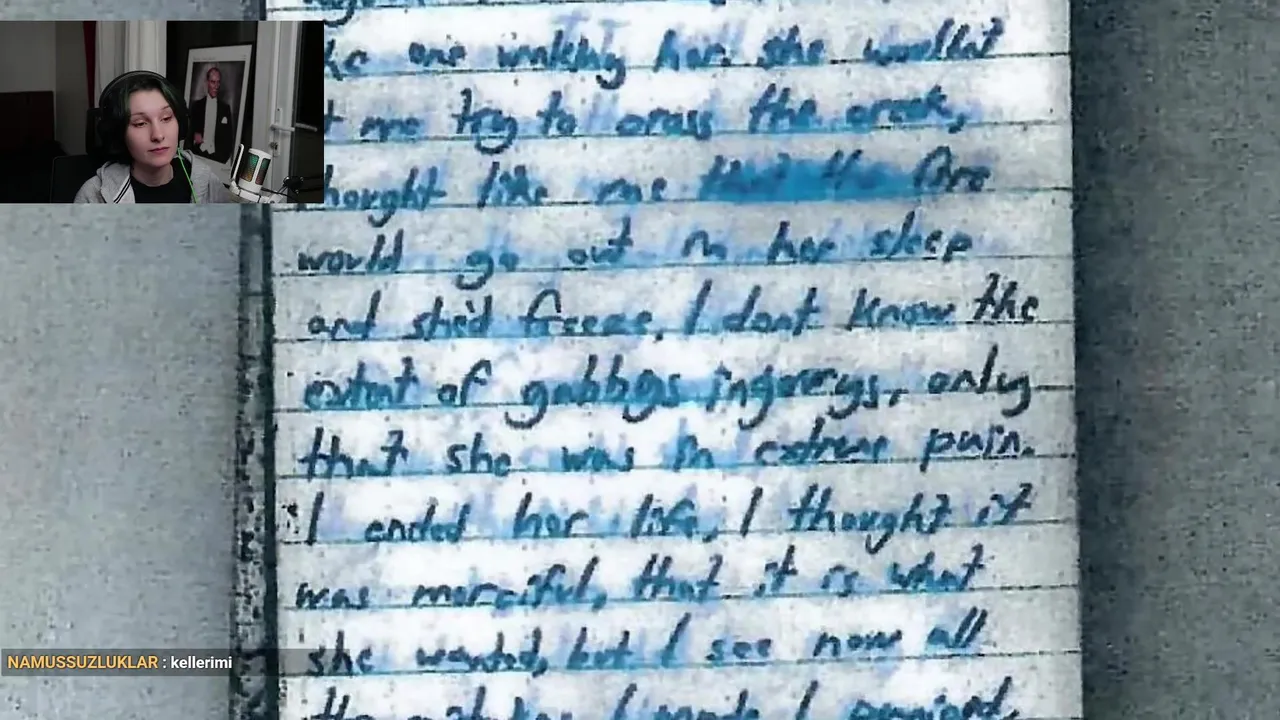 one waking her. she wouldnt
me try to cross the creek,
thought like me that the fire
would go out in her sleep
and she'd freeze. I dont know the
extent of gabbys injurys, only
that she was in extreme pain.
I ended her life, I thought it
was merciful, that it is what
she wanted, but I see now all
the mistakes I made. I panicked,
NAMUSSUZLUKLAR : kellerimi